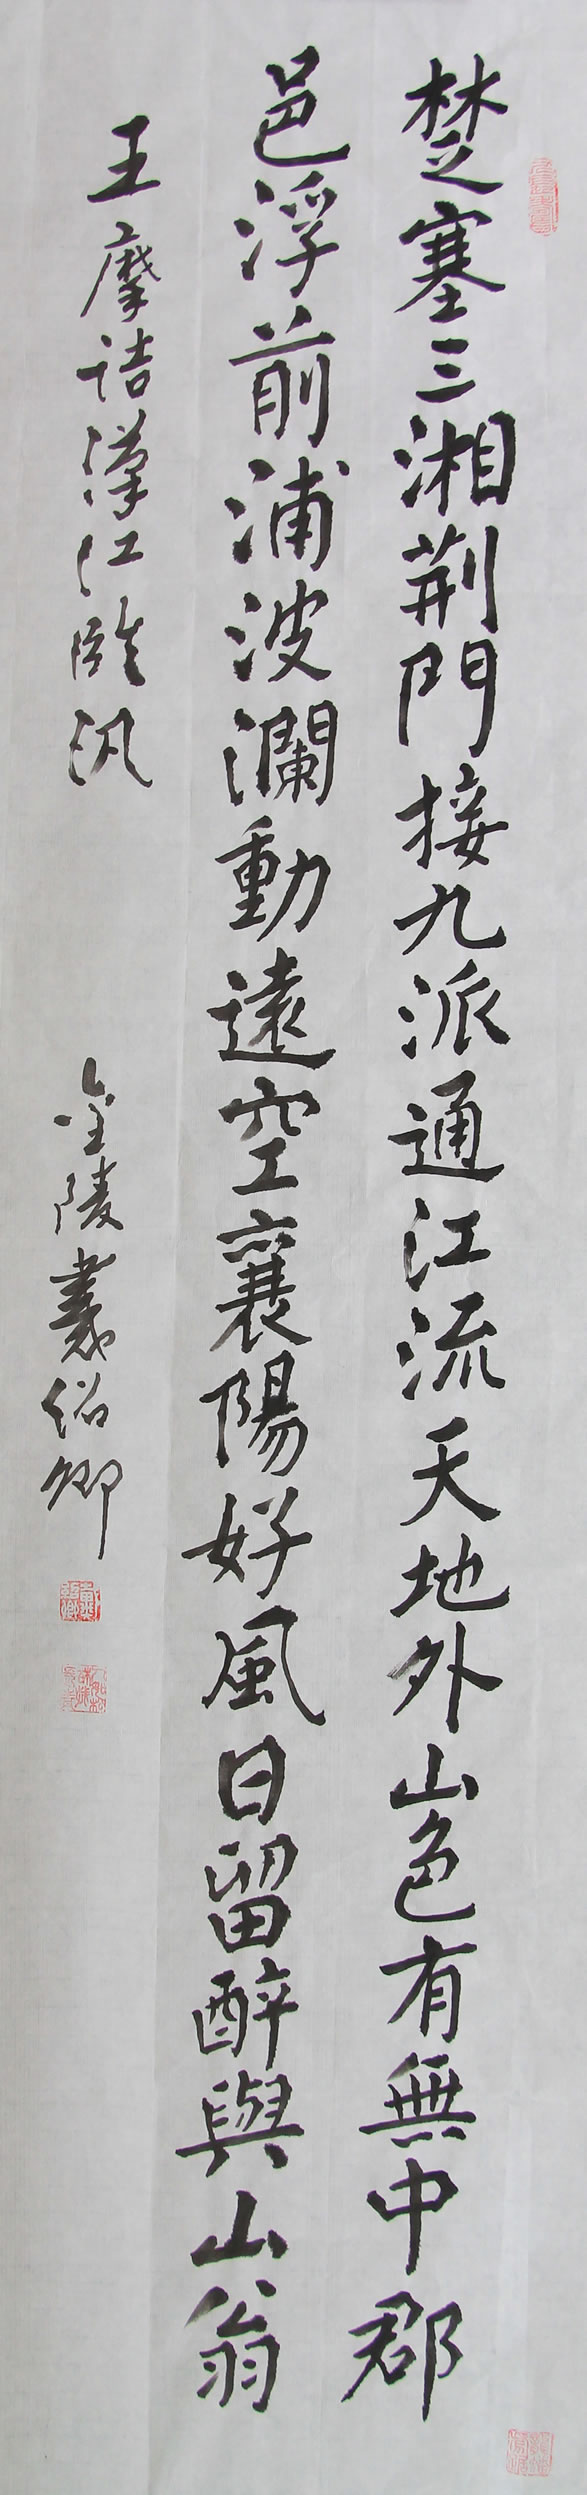 楚塞三湘荆門接九派通江流天地外山色有無中郡
邑浮前浦波瀾動遠空襄陽好風日留醉與山翁
王摩詰漢江臨汎
金陵戴紹卿